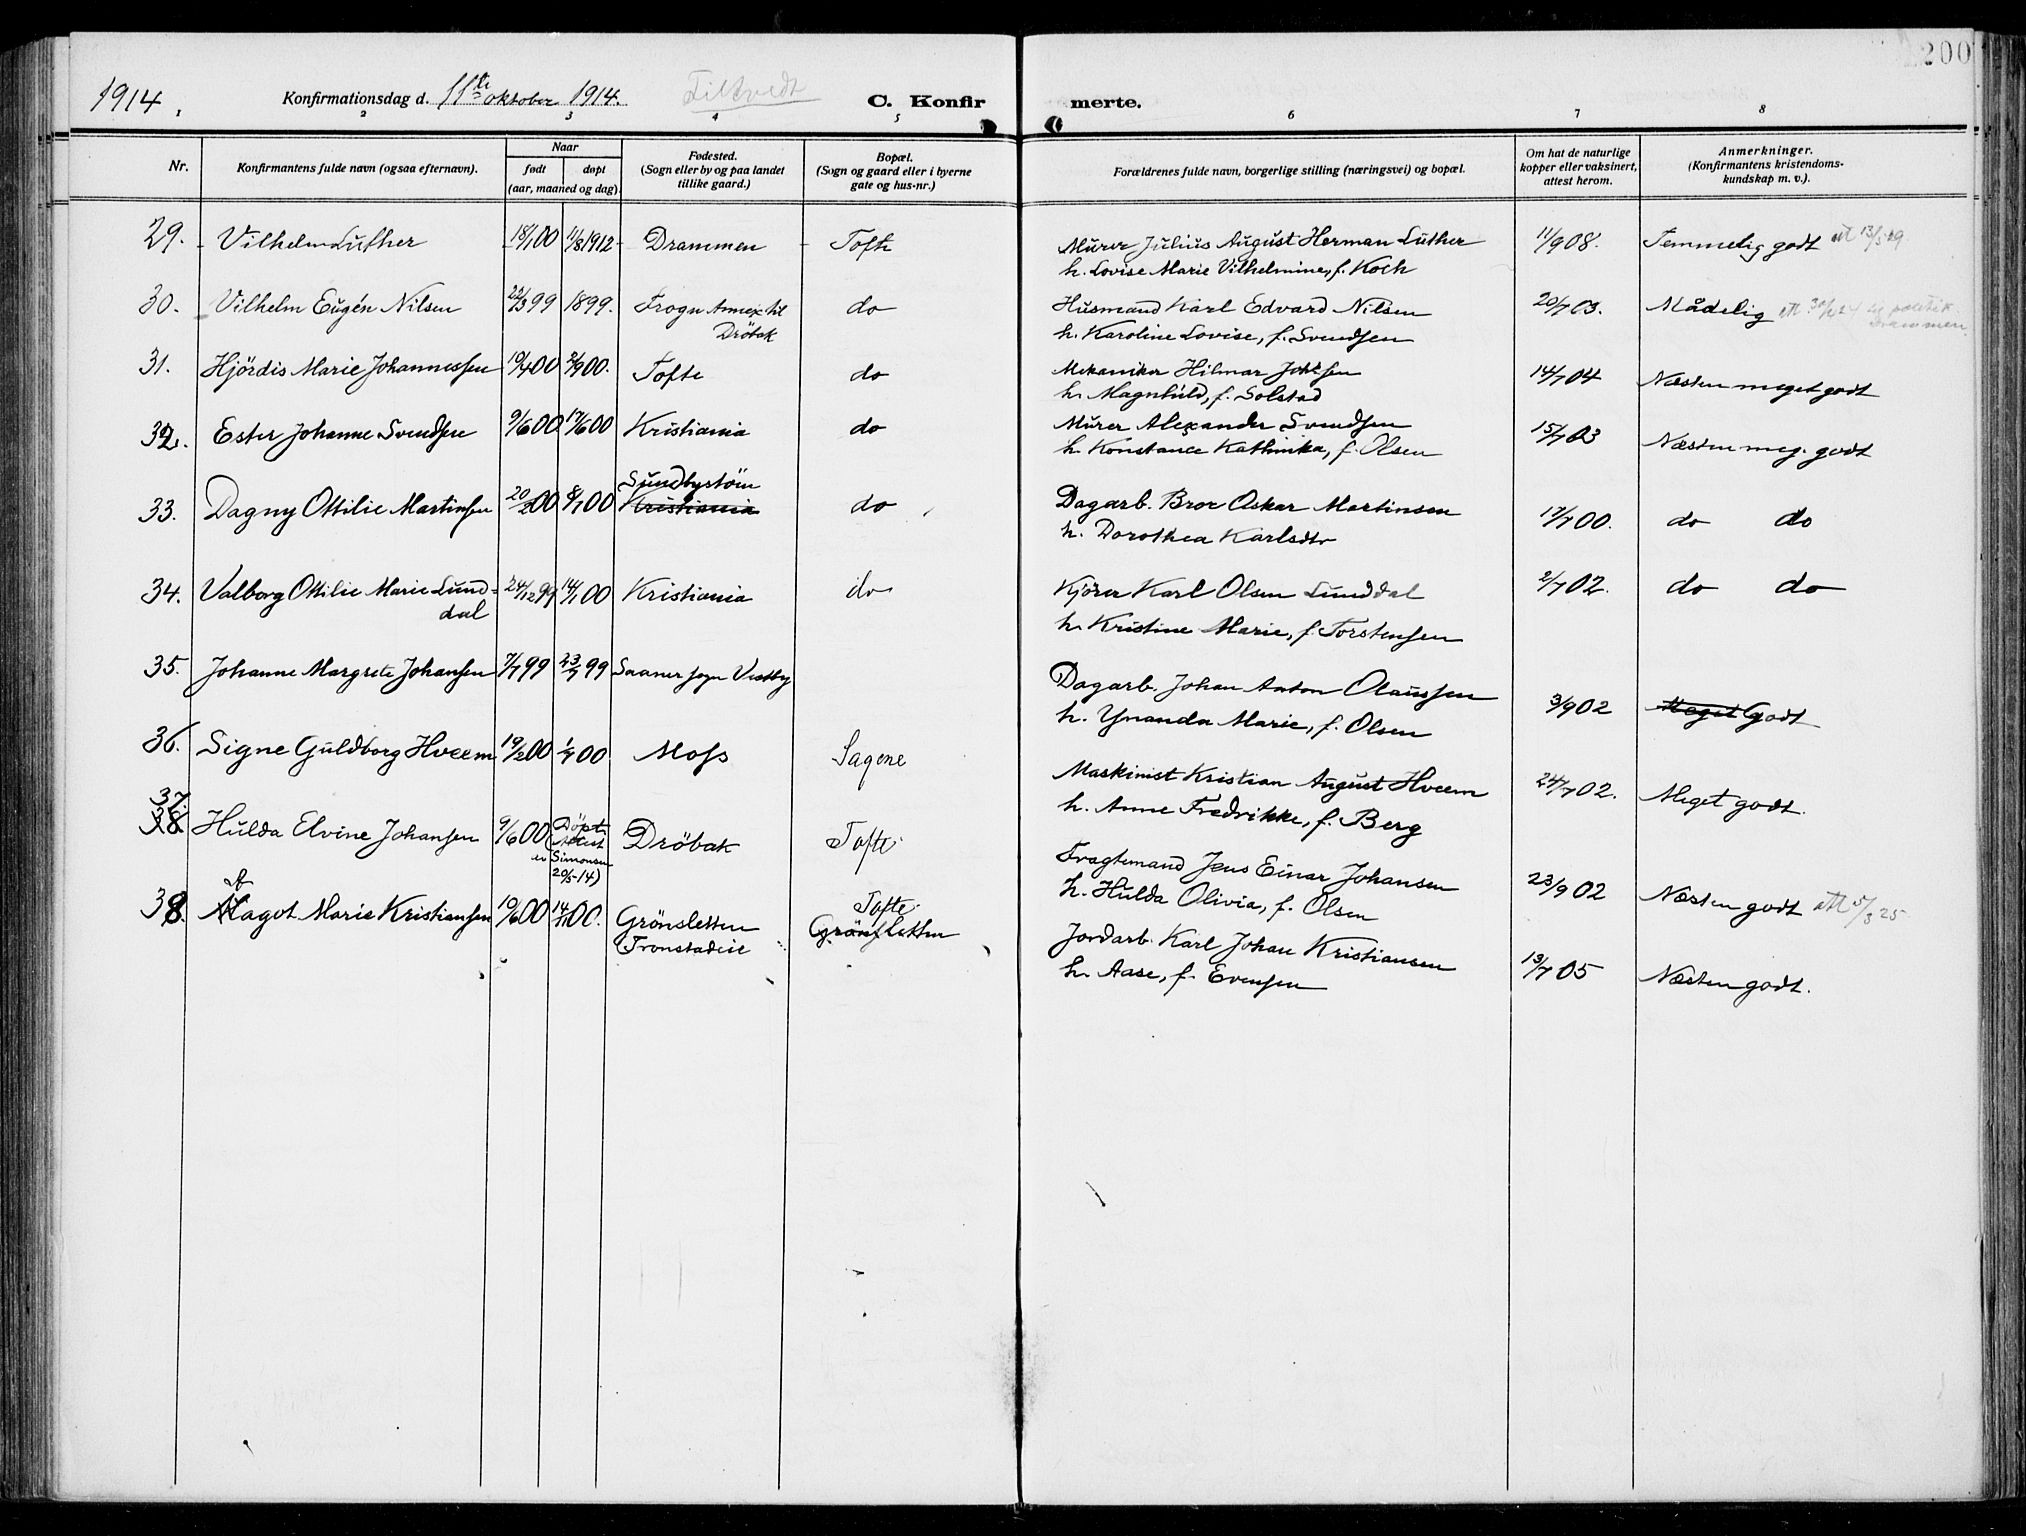 200
1914. Konfirmationsdag d. 11te oktober 1914. Filtvedt C. Konfirmerte.
1 2 3 4 5 6 7 8
Nr. Konfirmantens fulde navn (ogsaa efternavn). Naar født døpt (aar, maaned og dag). Fødested. (Sogn eller by og paa landet tillike gaard.) Bopæl. (Sogn og gaard eller i byerne gate og hus-nr.) Forældrenes fulde navn, borgerlige stilling (næringsvei) og bopæl. Om hat de naturlige kopper eller vaksinert, attest herom. Anmerkninger. (Konfirmantens kristendoms-kundskap m. v.).
29. Vilhelm Luther 18/1 00 11/8 1912 Drammen Tofte Murer Julius August Herman Luther 11/9 08. Temmelig godt
h. Lovise Marie Vilhelmine, f. Koch
30. Vilhelm Eugén Nilsen 22/3 99 1899. Frogn Annex til Husmand Karl Edvard Nilsen 20/7 03. Mådelig
Dröbak do h. Karoline Lovise, f. Svendsen
31. Hjördis Marie Johannessen 19/4 00 2/9 00. Tofte do Mekaniker Hilmar Johsen 14/7 04 Næsten meget godt
h. Magnhild, f. Solstad
32. Ester Johanne Svendsen 9/6 00 17/6 00 Kristiania do Murer Alexander Svendsen 15/7 03 Næsten meg. godt
h. Konstance Kathinka, f. Olsen
Sundbystöin
33. Dagny Ottilie Martinsen 20/2 00 8/7 00 Kristiania do Dagarb. Bror Oskar Martinsen 17/7 00. do do
h. Dorothea Karlsdtr
34. Valborg Ottilie Marie Lund= 24/12 99 14/1 00 Kristiania do Kjörer Karl Olsen Lunddal 2/7 02. do do
dal h. Kristine Marie, f. Torstensen
35. Johanne Margrete Johansen 7/7 99 23/7 99 Saaner sogn Vestby Dagarb. Johan Anton Olaussen 3/9 02 Meget Godt
h. Ynanda Marie, f. Olsen
36. Signe Guldborg Hveem 19/2 00 1/7 00 Moss Sagene Maskinist Kristian August Hveem 24/7 02. Meget godt.
h. Anne Fredrikke, f. Berg
37.
38 Hulda Elvine Johansen 9/6 00 Döpt (Attest Simonsen 20/5-14) Dröbak Tofte Fragtemand Jens Einar Johansen 23/9 02 Næsten godt att 5/3 25
h. Hulda Olivia, f. Olsen
38. Aagot Marie Kristiansen 10/6 00 14/1 00. Grönsletten Tofte Jordarb. Karl Johan Kristiansen 13/7 05 Næsten godt.
(Tronstadeie Grönsletten h. Aase, f. Evensen